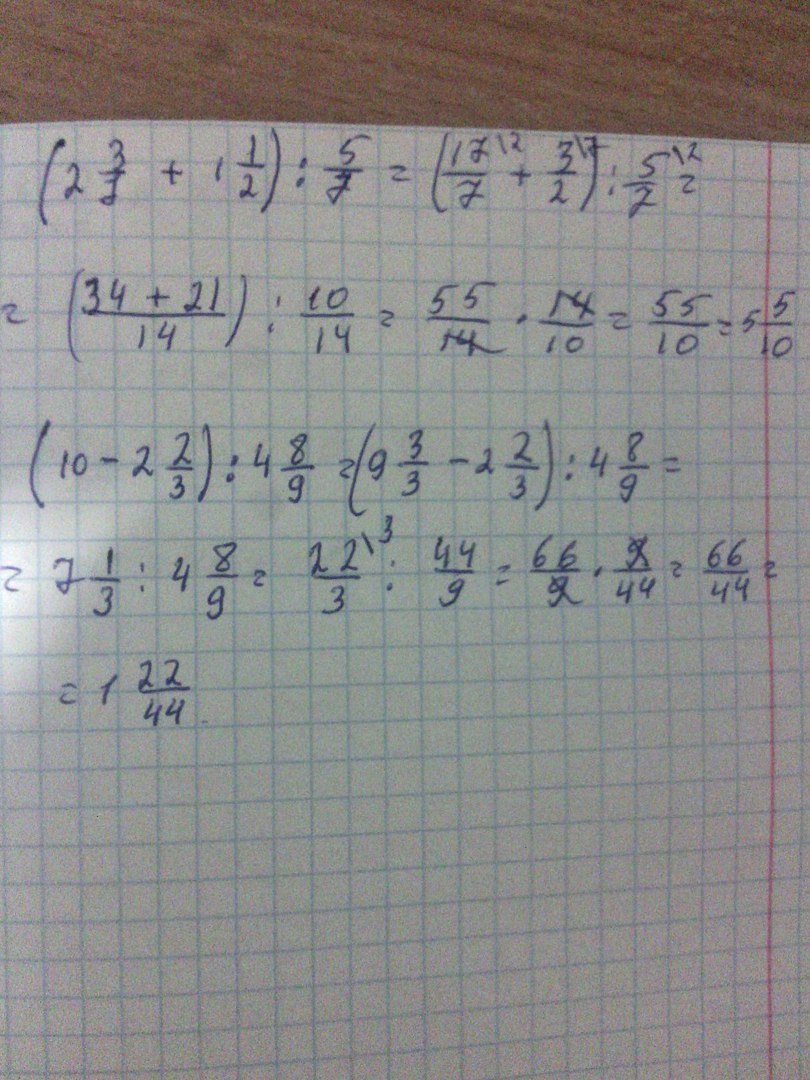 (2 3/7 + 1 1/2) : 5/7 = (17\2/7 + 3\7/2) : 5\2/7 =
= (34 + 21/14) : 10/14 = 55/14 · 14/10 = 55/10 = 5 5/10
(10 - 2 2/3) : 4 8/9 = (9 3/3 - 2 2/3) : 4 8/9 =
= 7 1/3 : 4 8/9 = 22\3/3 : 44/9 = 66/9 · 9/44 = 66/44 =
= 1 22/44